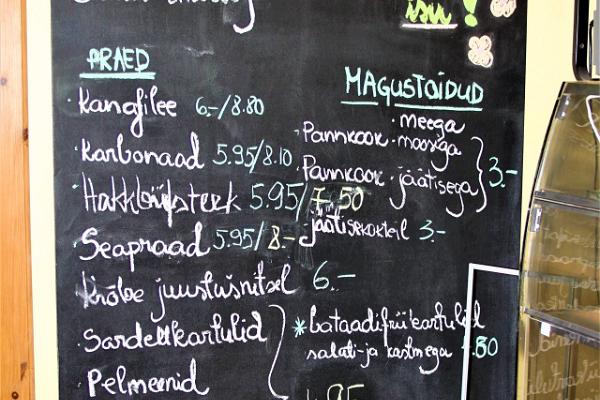 isu!
PRAED
Kanafilee 6.-/8.80
Karbonaad 5.95/8.10
Hakkbiifsteek 5.95/7.50
Seapraad 5.95/8.-
Krõbe juustušnitsel 6.-
Sardell kartulid
Pelmeenid
MAGUSTOIDUD
Pannkook meega
moosiga
Pannkook jäätisega 3.-
jäätisekokteil 3.-
* bataadifriikartulid
salati-ja kastmega